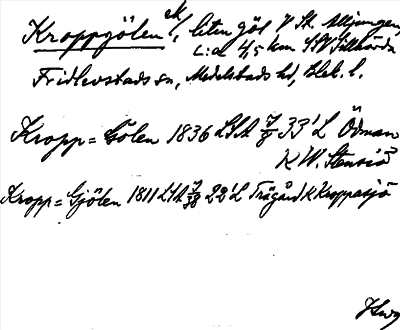 Kroppgölen ek., liten göl V St. Alljungen,
c:a 4,5 km SV Tillkörda
Fridlevstads sn, Medelstads hd, Blek. l.
Kropp=Gölen 1836 LSA 33'L Ödman
K W. Stensjö
Kropp=Gjölen 1811 LSA 22'L Trägård K Kroppasjö